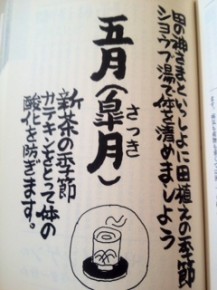 田の神さまといっしょに田植えの季節
ショウブ湯で体を清めましょう
五月(皐月)
さつき
新茶の季節
カテキンをとって体の
酸化を防ぎます。